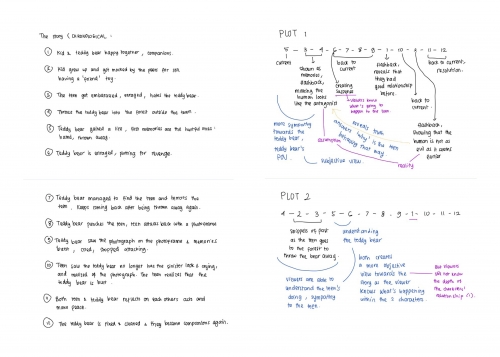 The story (CHRONOLOGICAL) :
① Kid & teddy bear happy together, companions.
② Kid grew up and got mocked by the peers for still
having a "friend" toy.
③ The teen got embarrassed, enraged, hated the teddy bear.
④ Throws the teddy bear into the forest outside the town.
⑤ Teddy bear gained a life, but memories are the hurtful ones:
hated, thrown away.
⑥ Teddy bear is enraged, planning for revenge.
⑦ Teddy bear managed to find the teen and torments the
teen. Keeps coming back after being thrown away again.
⑧ Teddy bear punches the teen, teen attacks back with a photoframe
⑨ Teddy bear saw the photograph on the photoframe & memories
burnt, cried, stopped attacking.
⑩ Teen saw the teddy bear no longer has the sinister look & crying,
and noticed of the photograph. The teen realises that the
teddy bear is hurt.
⑪ Both teen & teddy bear reflects on each others acts and
makes peace.
⑫ The teddy bear is fixed & cleaned & they become companions again.
PLOT 1
5 - 3 - 4 - 6 - 7 - 8 - 9 - 1 - 10 - 2 - 11 - 12
current
shown as
memories,
flashback,
making the
human looks
like the antagonist
back to
current
creating
suspense
viewers know
what's going to
happen to the teen
flashback,
reveals that
they had
good relationship
before.
back to
current
back to current,
resolution.
flashback,
showing that the
human is not as
evil as it seemed
earlier
more sympathy
towards the
teddy bear,
teddy bear's
POV.
assumption
reveals truth,
answers 'why' is the teen
behaving that way
reality
Subjective view
PLOT 2
4 - 2 - 3 - 5 - 6 - 7 - 8 - 9 - 1 - 10 - 11 - 12
snippet of past
as the teen goes
to the forest to
throw the bear away.
understanding
the teddy bear
viewers are able to
understand the teen's
doing, sympathy
to the teen.
both creates
a more objective
view towards the
story as the viewer
knows what's happening
within the 2 characters.
but viewers
did not know
the depth of
the characters'
relationship (1).